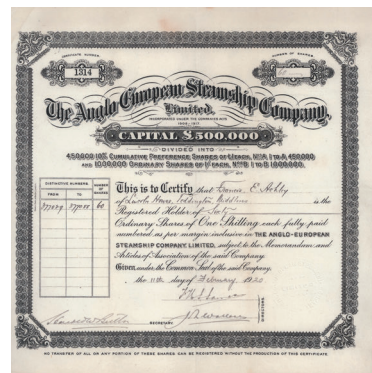 CERTIFICATE NUMBER.
1314
NUMBER OF SHARES.
60
The Anglo-European Steamship Company,
Limited.
INCORPORATED UNDER THE COMPANIES ACTS
1908-1917
CAPITAL £500,000
DIVIDED INTO
450,000 10% CUMULATIVE PREFERENCE SHARES OF £1 EACH, Nos. 1 TO 450,000
AND 1,000,000 ORDINARY SHARES OF 1/- EACH, Nos. 1 TO 1,000,000.
DISTINCTIVE NUMBERS.
NUMBER OF SHARES
FROM TO
60
This is to Certify that E. Ashby
of Lincoln House, Teddington, Middlesex is the
Registered Holder of Sixty
Ordinary Shares of One Shilling each fully paid
numbered as per margin inclusive in THE ANGLO-EUROPEAN
STEAMSHIP COMPANY, LIMITED, subject to the Memorandum and
Articles of Association of the said Company.
Given under the Common Seal of the said Company,
the 11th day of February 1920
DIRECTORS.
SECRETARY
NO TRANSFER OF ALL OR ANY PORTION OF THESE SHARES CAN BE REGISTERED WITHOUT THE PRODUCTION OF THIS CERTIFICATE.